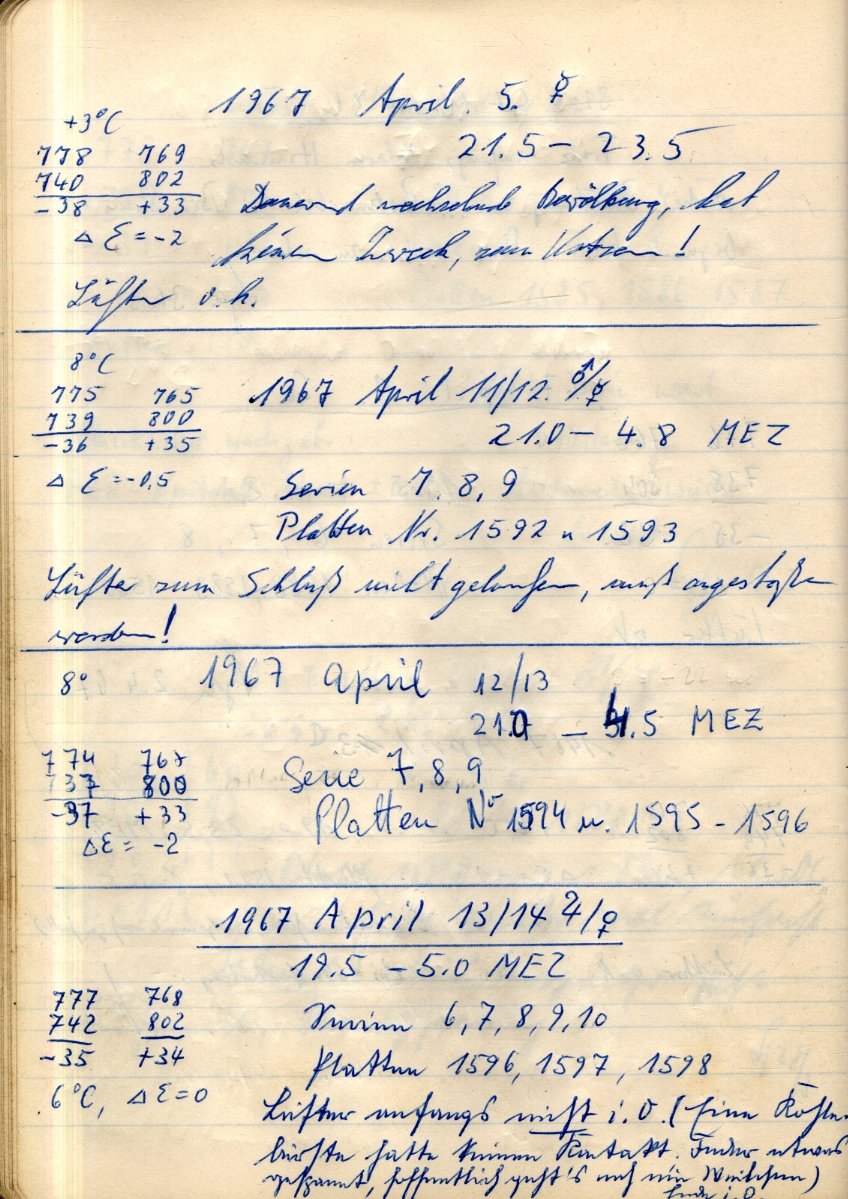 1967 April. 5. ☿
+3°C
21.5 – 23.5
778 769
740 802
-38 +33
Dauernd wechselnde Bewölkung, hat
Δ Ɛ = -2
keinen Zweck, zum Kotzen!
Lüfter o.k.
8°C
1967 April 11/12. ♂/☿
775 765
739 800
-36 +35
21.0 – 4.8 MEZ
Δ Ɛ = -0,5
Serien 7. 8, 9
Platten Nr. 1592 u 1593
Lüfter zum Schluß nicht gelaufen, muß angestoßen
werden!
8°
1967 April 12/13
21.0 – 4.5 MEZ
774 767
737 800
-37 +33
Δ Ɛ = -2
Serie 7, 8, 9
Platten No 1594 u. 1595 - 1596
1967 April 13/14 ♃/♀
19.5 – 5.0 MEZ
777 768
742 802
-35 +34
Serien 6, 7, 8, 9, 10
Platten 1596, 1597, 1598
6°C, Δ Ɛ = 0
Lüfter anfangs nicht i.O. (Eine Kohle-
bürste hatte keinen Kontakt. Feder etwas
gespannt, hoffentlich geht's noch ein Weilchen)
Ende i.O.